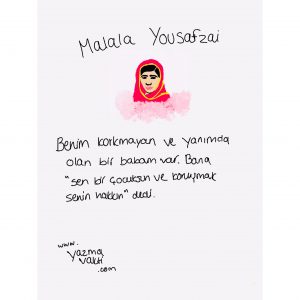 Malala Yousafzai
Benim korkmayan ve yanımda
olan bir babam var. Bana
"sen bir çocuksun ve konuşmak
senin hakkın" dedi.
www.
yazma
vakti
.com